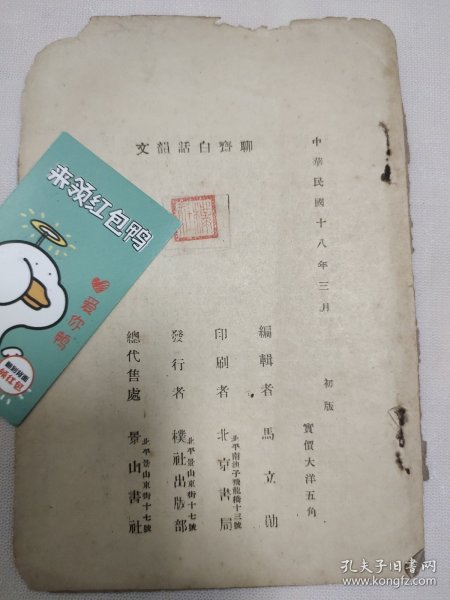 中華民國十八年三月 初版
實價大洋五角
聊齋白話韻文
編輯者 馬立勛
印刷者 北京書局
北平南池子飛龍橋十三號
發行者 樸社出版部
北平景山東街十七號
總代售處 景山書社
北平景山東街十七號
来领红包鸭
爱你鸭
孔夫子旧书网
www.kongfz.com